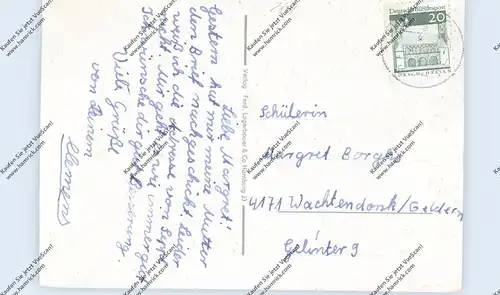 Liebe Margret!
Gestern hat mir meine Mutter
den Brief nachgeschickt. Leider
weiß ich die Adresse von Seppi
nicht. Mir geht es wie immer gut.
Ich wünsche dir gute Besserung.
Viele Grüße
von Deinem
Klemens
Verlag Ferd. Lagerbauer & Co Hamburg 23
Deutsche Bundespost
20
Schülerin
Margret
4171 Wachtendonk/Geldern
Gelinter 9
Kaufen Sie jetzt VueScan!
www.hamrick.com